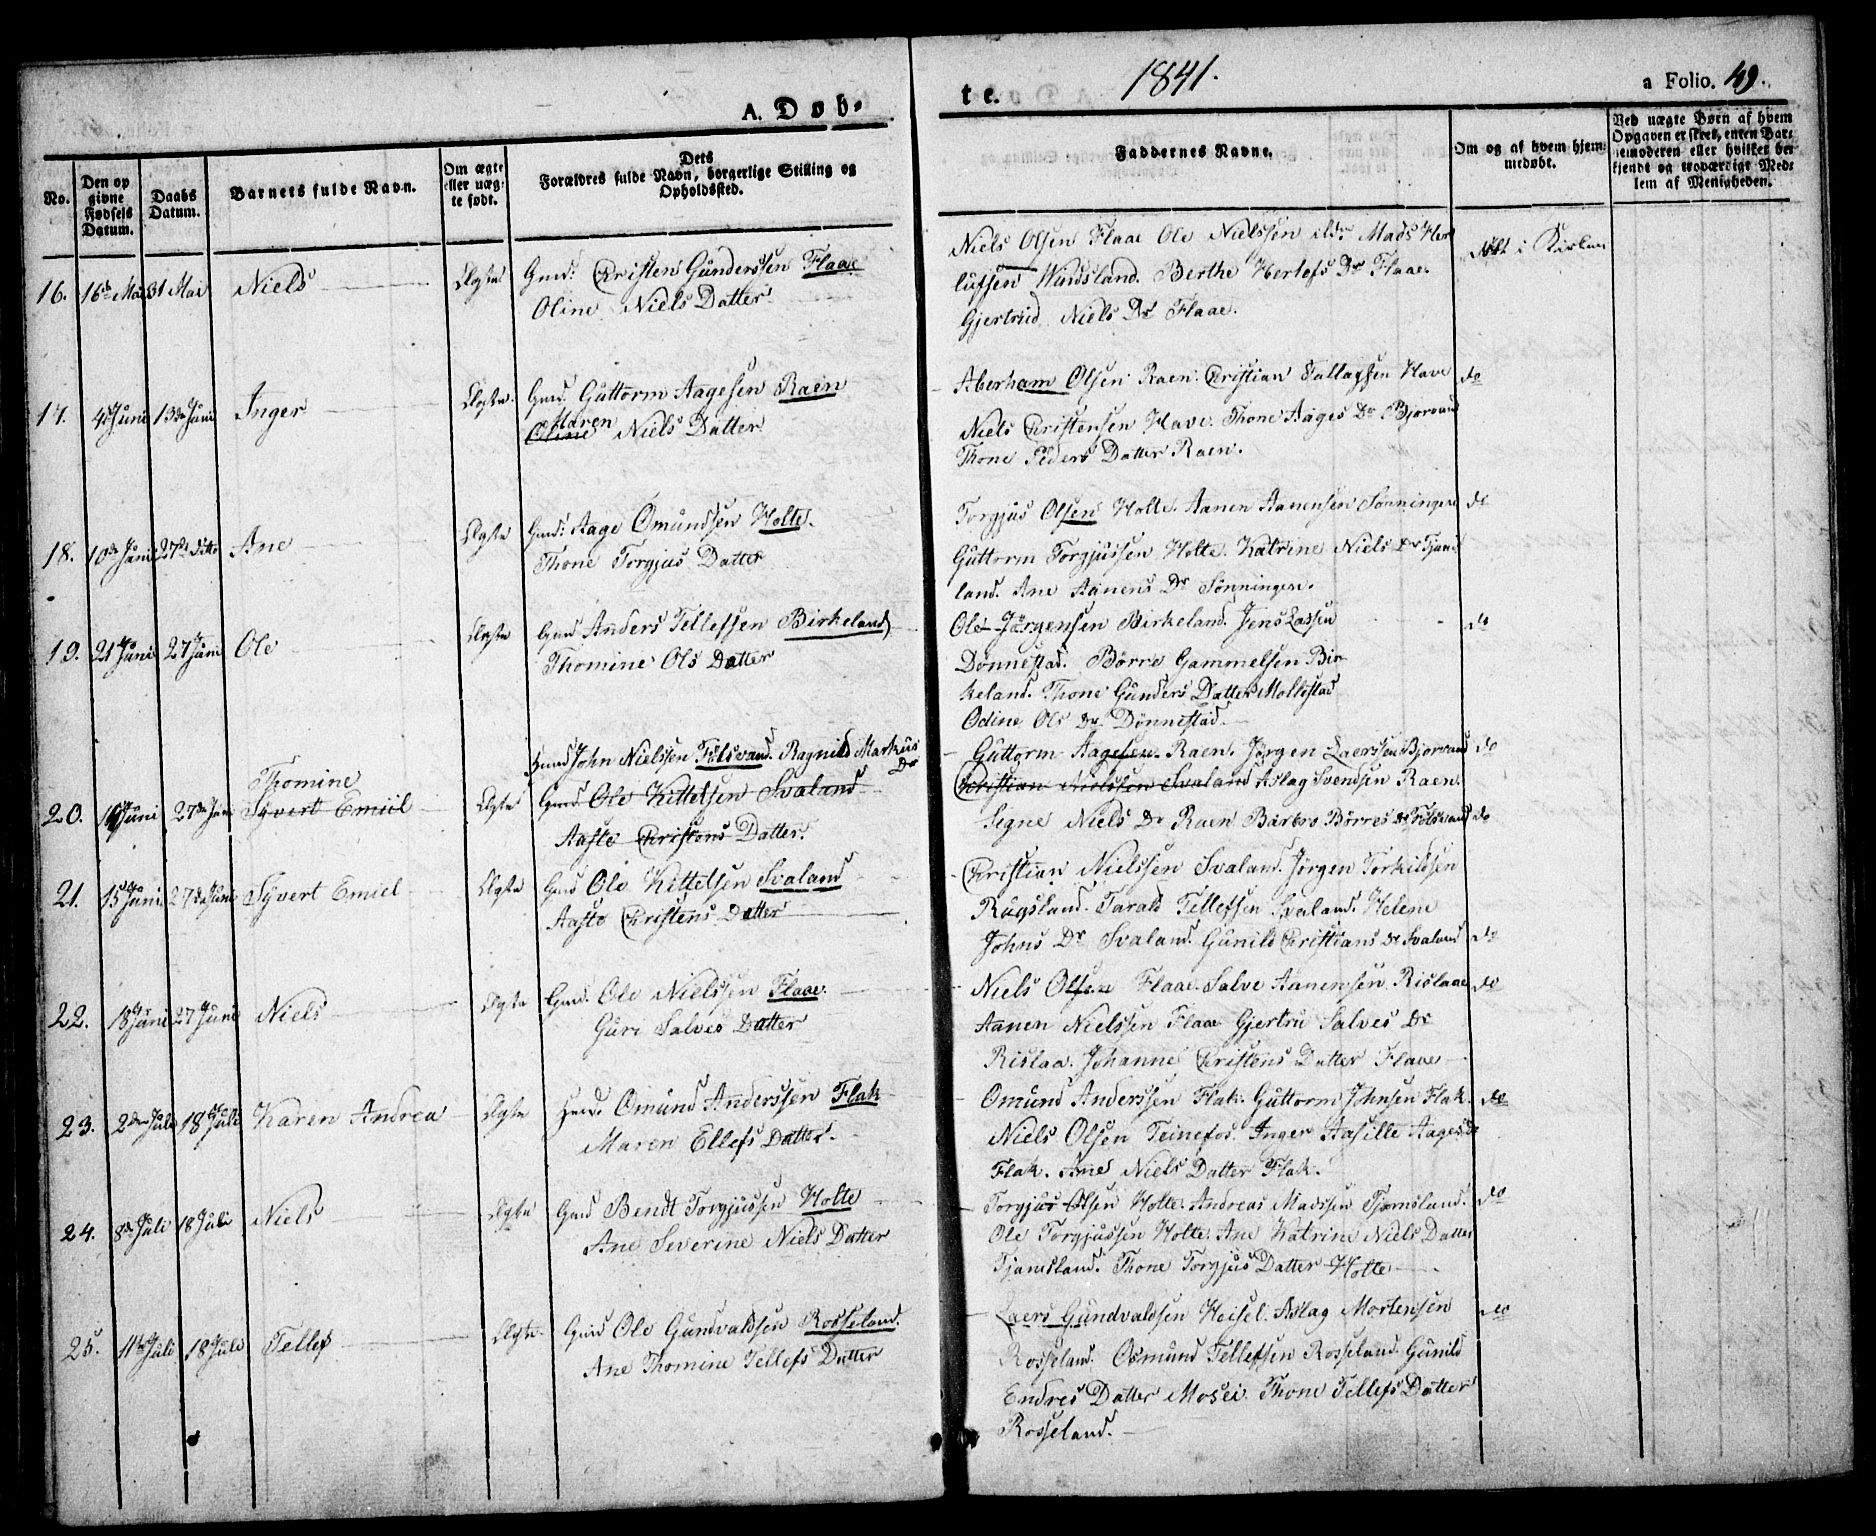 A. Døb-
No.
Den op
givne
Fødsels
Datum.
Daabs
Datum.
Barnets fulde Navn.
Om ægte
eller uæg-
te født.
Dets
Forældres fulde Navn, borgerlige Stilling og
Opholdssted.
16. 16de Mai 31 Mai Niels Ægte Gmd: Christen Gundersen Flaae
Oline Niels Datter
17. 4de Juni 13de Juni Inger Ægte Gmd. Guttorm Aagesen Raen
Maren
Oline Niels Datter
18. 10de Juni 27de ditto Ane Ægte Gmd: Aage Omundsen Holte.
Thone Torgjus Datter
19. 21 Juni 27 Juni Ole Ægte Gmd Anders Tellefsen Birkeland
Thomine Ols Datter
Hmd John Nielssen Fidsvand. Ragnild Markus
Dr
Thomine
20. Juni 27de Juni Syvert Emiil Ægte Gmd: Ole Kittelsen Svaland
Aaste Christens Datter.
21. 15 Juni 27de Juni Syvert Emiel Ægte Gmd Ole Kittelsen Svaland
Aaste Christens Datter
22. 18 Juni 27 Juni Niels Ægte Gmd. Ole Nielssen Flaae.
Guri Salves Datter
23. 2den Juli 18 Juli Karen Andrea Ægte Hmd. Omund Anderssen Flak
Maren Ellefs Datter.
24. 8de Juli 18 Juli Niels Ægte Gmd Bendt Torgjussen Holte
Ane Severine Niels Datter
25. 11te Juli 18 Juli Tellef Ægte Gmd Ole Gundvaldsen Rosseland.
Ane Thomine Tellefs Datter
te. 1841. a Folio. 49.
Faddernes Navne.
Om og af hvem hjem-
medøbt.
Ved uægte Børn af hvem
Opgaven er skeet, enten Bar-
nemoderen eller hvilket be-
kjendt og troværdigt Med-
lem af Menigheden.
Niels Olsen Flaae Ole Nielssen Mads Her
lufsen Windsland. Berthe Herlofs Dr Flaae.
Gjertrud Niels Dr Flaae.
døbt i Kirken
Aberham Olsen Raen. Christian Tallagsen Have do
Niels Christensen Have. Thone Aages Dr Bjorvand
Thone Peders Datter Raen.
Torgjus Olsen Holte. Aanen Aanensen Sønningene do
Guttorm Torgjussen Holte. Katrine Niels Dr Tjams
land. Ane Aanens Dr Sønningen.
Ole Jørgensen Birkeland. Jens Lassen do
Dønnestad. Børre Gammelsen Bir-
keland. Thone Gunders Datter Mollestad
Odine Ols Dr. Dønnestad.
Guttorm Aagesen Raen. Jørgen Laerssen Bjorvand do
Christian Nielssen Svaland Aslag Svendsen Raen.
Segne Niels Dr Raen Barbro Børres Dr Fidsvand do
Christian Nielssen Svaland. Jørgen Torkildsen
Rugsland. Tarald Tellefsen Svaland. Helene
Johns Dr Svaland. Gunild Christians Dr Svaland do
Niels Olsen Flaae. Salve Aanensen Rislaae do
Aanen Nielssen Flaae Gjertru Salves Dr
Rislaa. Johanne Christens Datter Flaae
Omund Anderssen Flak. Guttorm Johnsen Flak. do
Niels Olsen Teinefos. Inger Aasille Aages Dr
Flak. Ane Niels Datter Flak.
Torgjus Olsen Holte. Andreas Madssen Tjomsland. do
Ole Torgjussen Holte. Ane Katrine Niels Datter
Tjamsland. Thone Torgjus Datter Holte
Laers Gundvaldsen Heisel. Aslag Mortensen do
Rosseland. Osmund Tellefsen Rosseland. Gunild
Endres Datter Mosei. Thone Tellefs Datter
Rosseland.